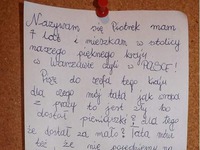 Nazywam się Piotrek mam
7 lat i mieszkam w stolicy
naszego pięknego kraju
w Warszawie czyli w POLSCE!
Piszę do szefa tego kraju
dla czego mój tata jak wraca
z pracy to jest zły bo
dostał pieniążki? dla tego
że dostał za mało? Tata mówi
też że nie pojedziemy na